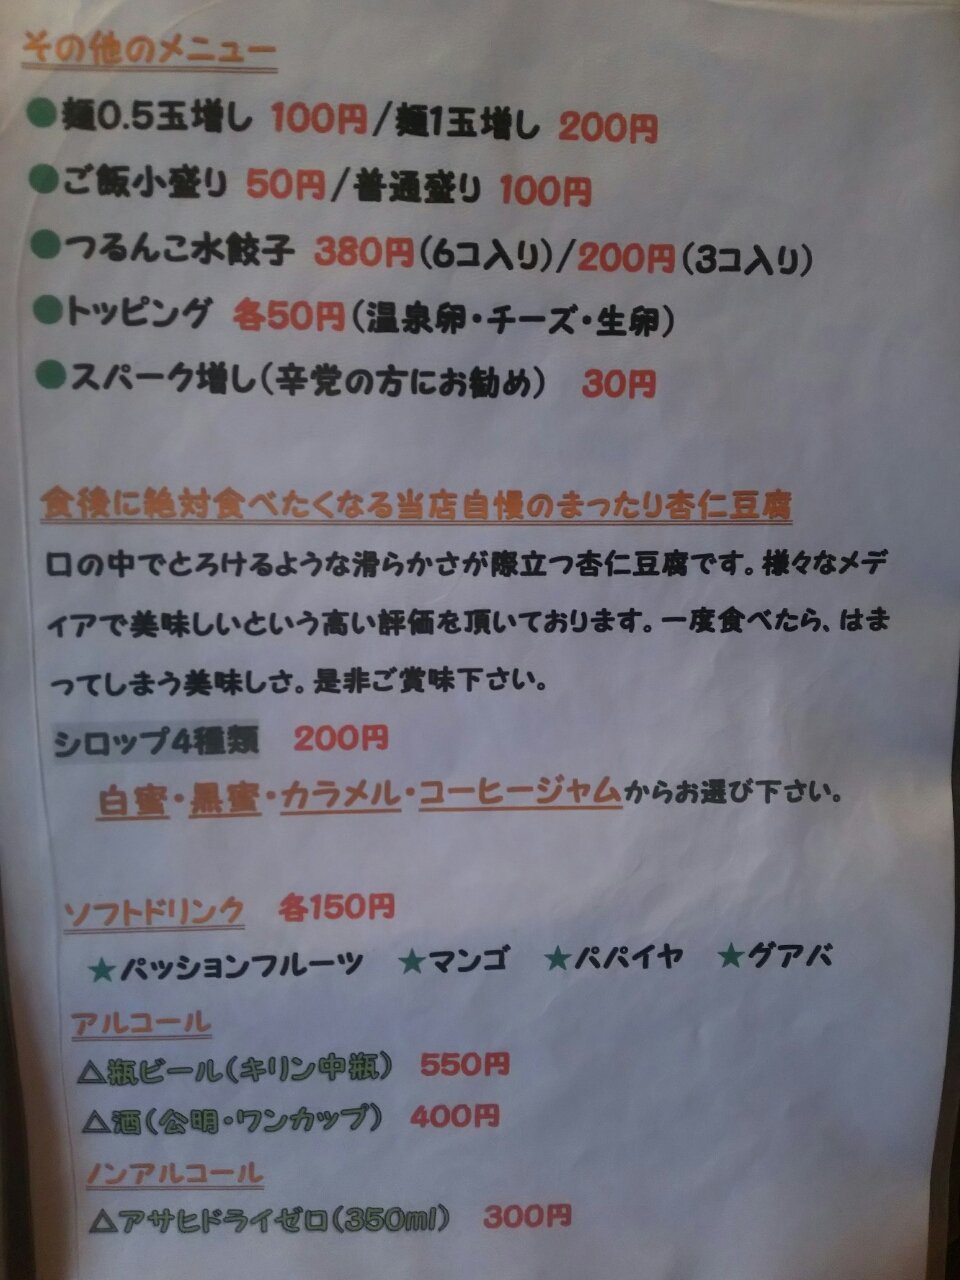 その他のメニュー
●麺0.5玉増し 100円/麺1玉増し 200円
●ご飯小盛り 50円/普通盛り 100円
●つるんこ水餃子 380円(6コ入り)/200円(3コ入り)
●トッピング 各50円(温泉卵・チーズ・生卵)
●スパーク増し(辛党の方にお勧め) 30円
食後に絶対食べたくなる当店自慢のまったり杏仁豆腐
口の中でとろけるような滑らかさが際立つ杏仁豆腐です。様々なメデ
ィアで美味しいという高い評価を頂いております。一度食べたら、はま
ってしまう美味しさ。是非ご賞味下さい。
シロップ4種類 200円
白蜜・黒蜜・カラメル・コーヒージャムからお選び下さい。
ソフトドリンク 各150円
★パッションフルーツ ★マンゴ ★パパイヤ ★グアバ
アルコール
△瓶ビール(キリン中瓶) 550円
△酒(公明・ワンカップ) 400円
ノンアルコール
△アサヒドライゼロ(350ml) 300円